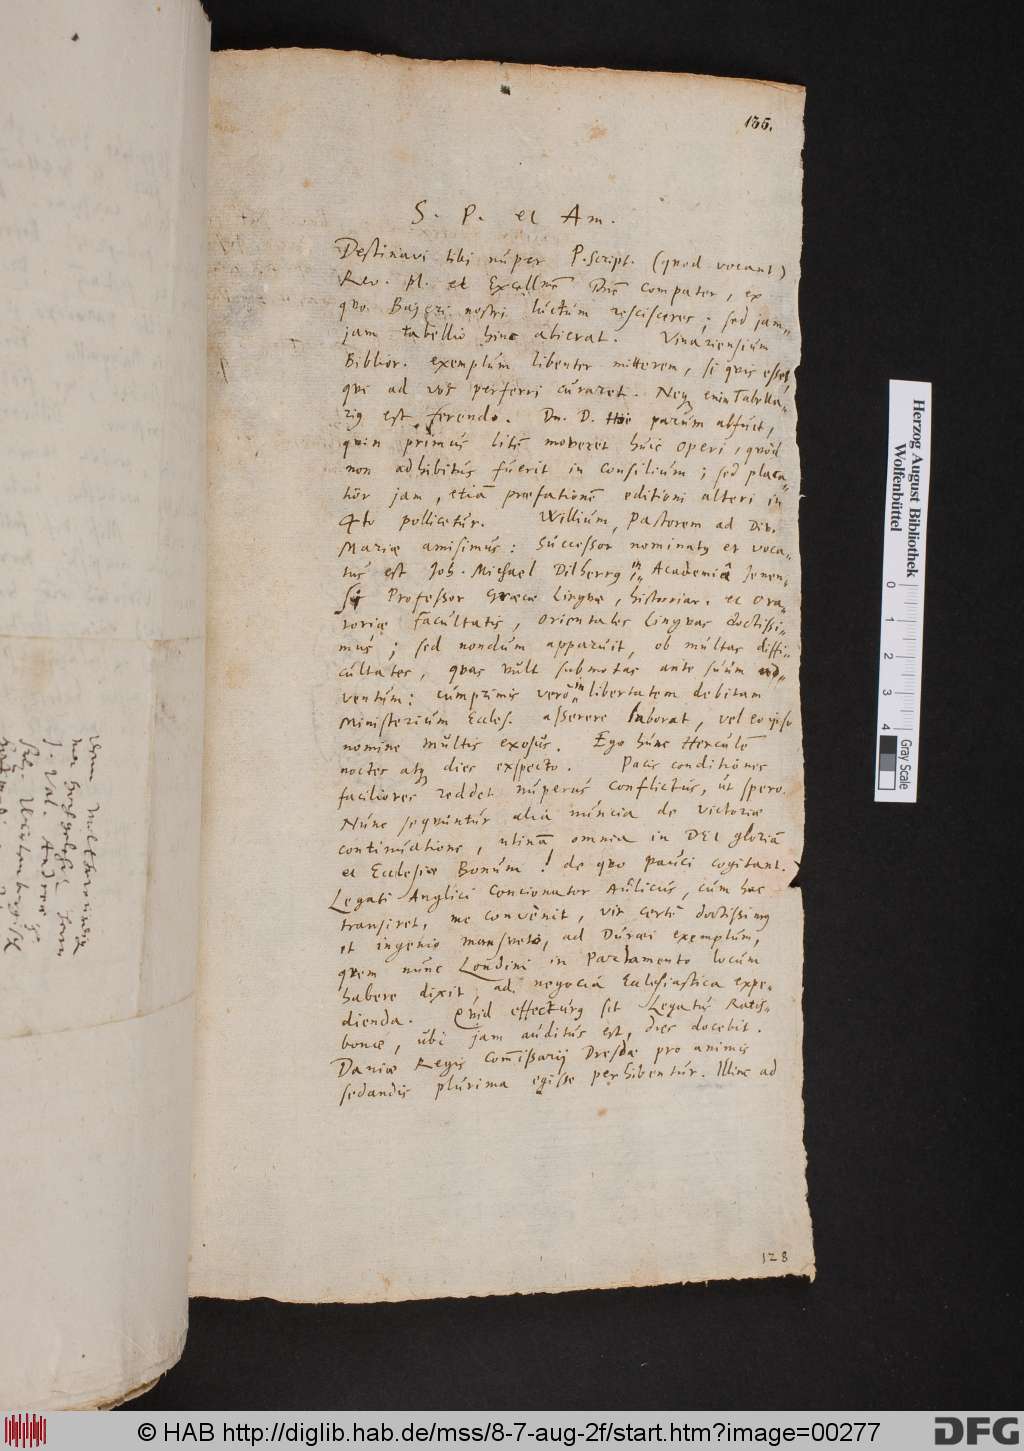 155.
S. P. et Am.
Destinavi tibi nuper P.Script. (quod vocant)
Rev. pl. et Excellme Dne compater, ex
quo Bajeri nostri luctum rescisceres; sed jam
jam tabellio hinc abierat. Vinariensium
Biblior. exemplum libenter mitterem, si quis esset,
qui ad vos perferri curaret. Neq enim Tabella-
riq est ferendo. Dn. D. Hoe parum abfuit,
quin primus litem moveret huic operi, quod
non adhibitus fuerit in consilium; sed placa-
tior jam, etiam præfationem editioni alteri in
4to pollicetur. Willium, Pastorem ad Div.
Mariæ amisimus: Successor nominatq et voca-
tus est Joh. Michael Dilherrq in Academiâ Jenen-
si Professor Græcæ Linguæ, historiar. et ora-
toriæ facultatis, orientales linguas doctissi-
mus; sed nondum apparuit, ob multas diffi-
cultates, quas vult submotas ante suum ad-
ventum: cumprimis verò in libertatem debitam
Ministerium Eccles. asserere laborat, vel eo ipso
nomine multis exosus. Ego hunc Herculem
noctes atq dies exspecto. Pacis conditiones
faciliores reddet nuperus conflictus, ut spero.
Nunc sequuntur alia nuncia de victoriæ
continuatione, utinam omnia in DEI gloriam
et Ecclesiæ Bonum! de quo pauci cogitant.
Legati Anglici Concionator Aulicus, cum hac
transiret, me convênit, vir certè doctissimq
et ingenio mansueto, ad Duræi exemplum,
quem nunc Londini in Parlamento locum
habere dixit, ad negocia Ecclesiastica expe-
dienda. Quid effecturq sit Legatus Ratis-
bonæ, ubi jam auditus est, dies docebit.
Daniæ Regis Commissarij Dresdæ pro animis
sedandis plurima egisse perhibentur. Illinc ad
128
J. Val. Andreæ
Herzog August Bibliothek
Wolfenbüttel
0 1 2 3 4
Gray Scale
© HAB http://diglib.hab.de/mss/8-7-aug-2f/start.htm?image=00277
DFG